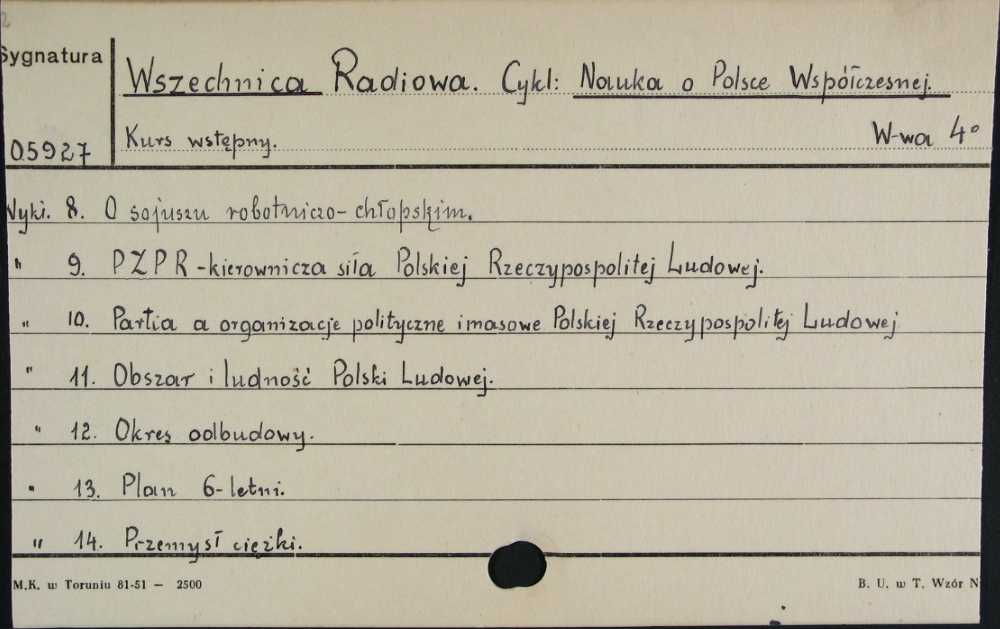 2
Sygnatura
Wszechnica Radiowa. Cykl: Nauka o Polsce Współczesnej.
05927
Kurs wstępny. W-wa 4°
Wykł. 8. O sojuszu robotniczo-chłopskim.
" 9. PZPR - kierownicza siła Polskiej Rzeczypospolitej Ludowej.
" 10. Partia a organizacje polityczne i masowe Polskiej Rzeczypospolitej Ludowej
" 11. Obszar i ludność Polski Ludowej.
" 12. Okres odbudowy.
" 13. Plan 6-letni.
" 14. Przemysł ciężki.
M.K. w Toruniu 81-51 — 2500 B. U. w T. Wzór N